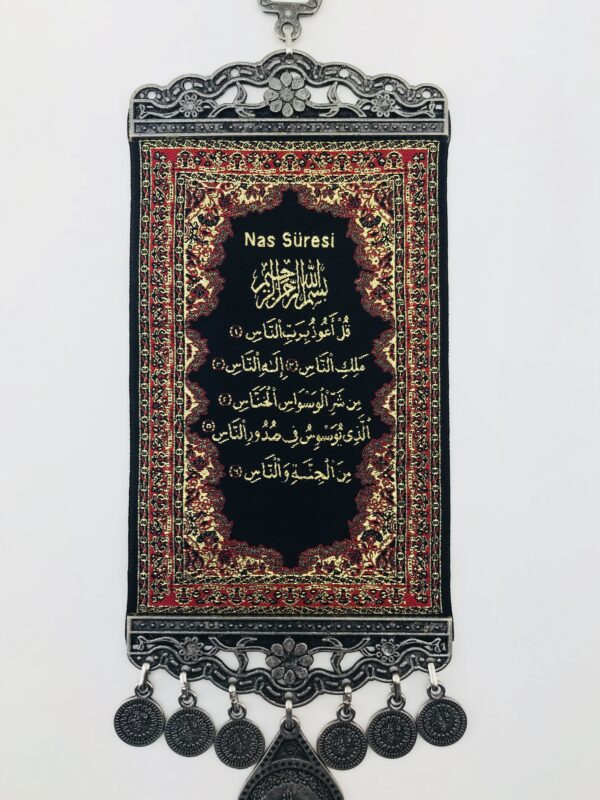 Nas Sûresi
بسم الله الرحمن الرحيم
قُلْ أَعُوذُ بِرَبِّ ٱلنَّاسِ ﴿١﴾
مَلِكِ ٱلنَّاسِ ﴿٢﴾ إِلَٰهِ ٱلنَّاسِ ﴿٣﴾
مِن شَرِّ ٱلْوَسْوَاسِ ٱلْخَنَّاسِ ﴿٤﴾
ٱلَّذِى يُوَسْوِسُ فِى صُدُورِ ٱلنَّاسِ ﴿٥﴾
مِنَ ٱلْجِنَّةِ وَٱلنَّاسِ ﴿٦﴾